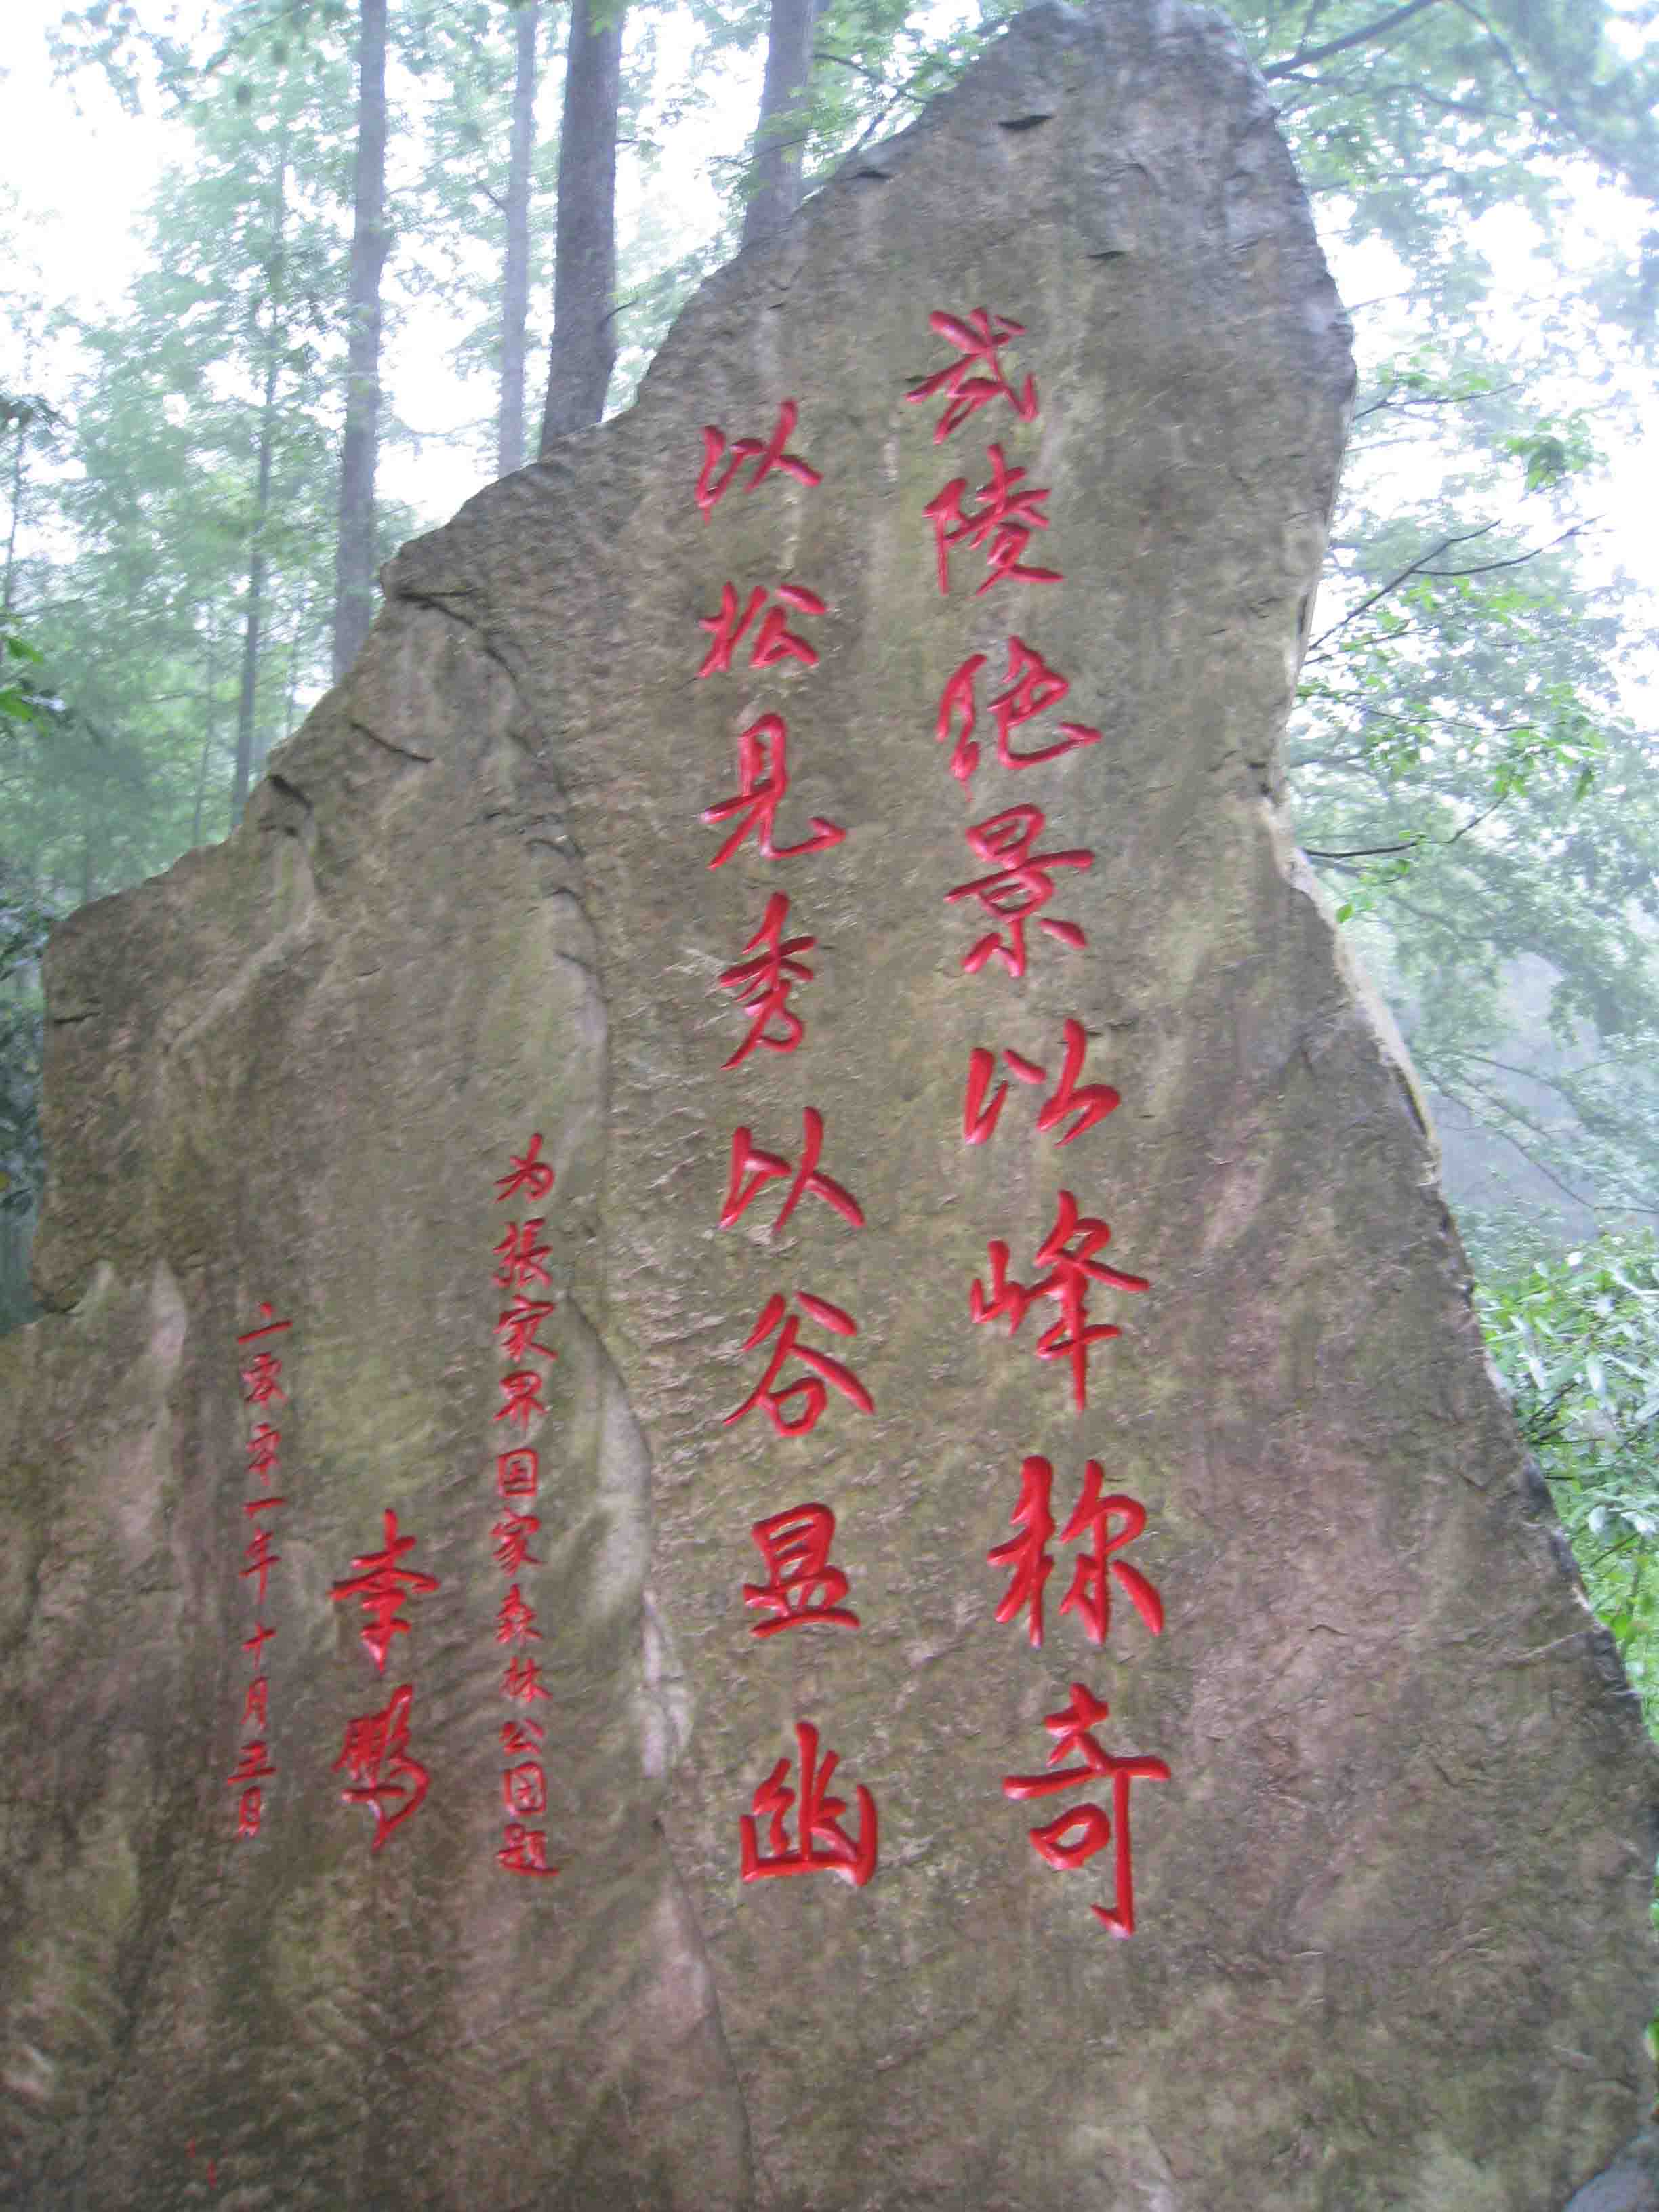 武陵绝景以峰称奇
以松见秀以谷显幽
为張家界国家森林公园题
李鹏
二零零一年十月三日